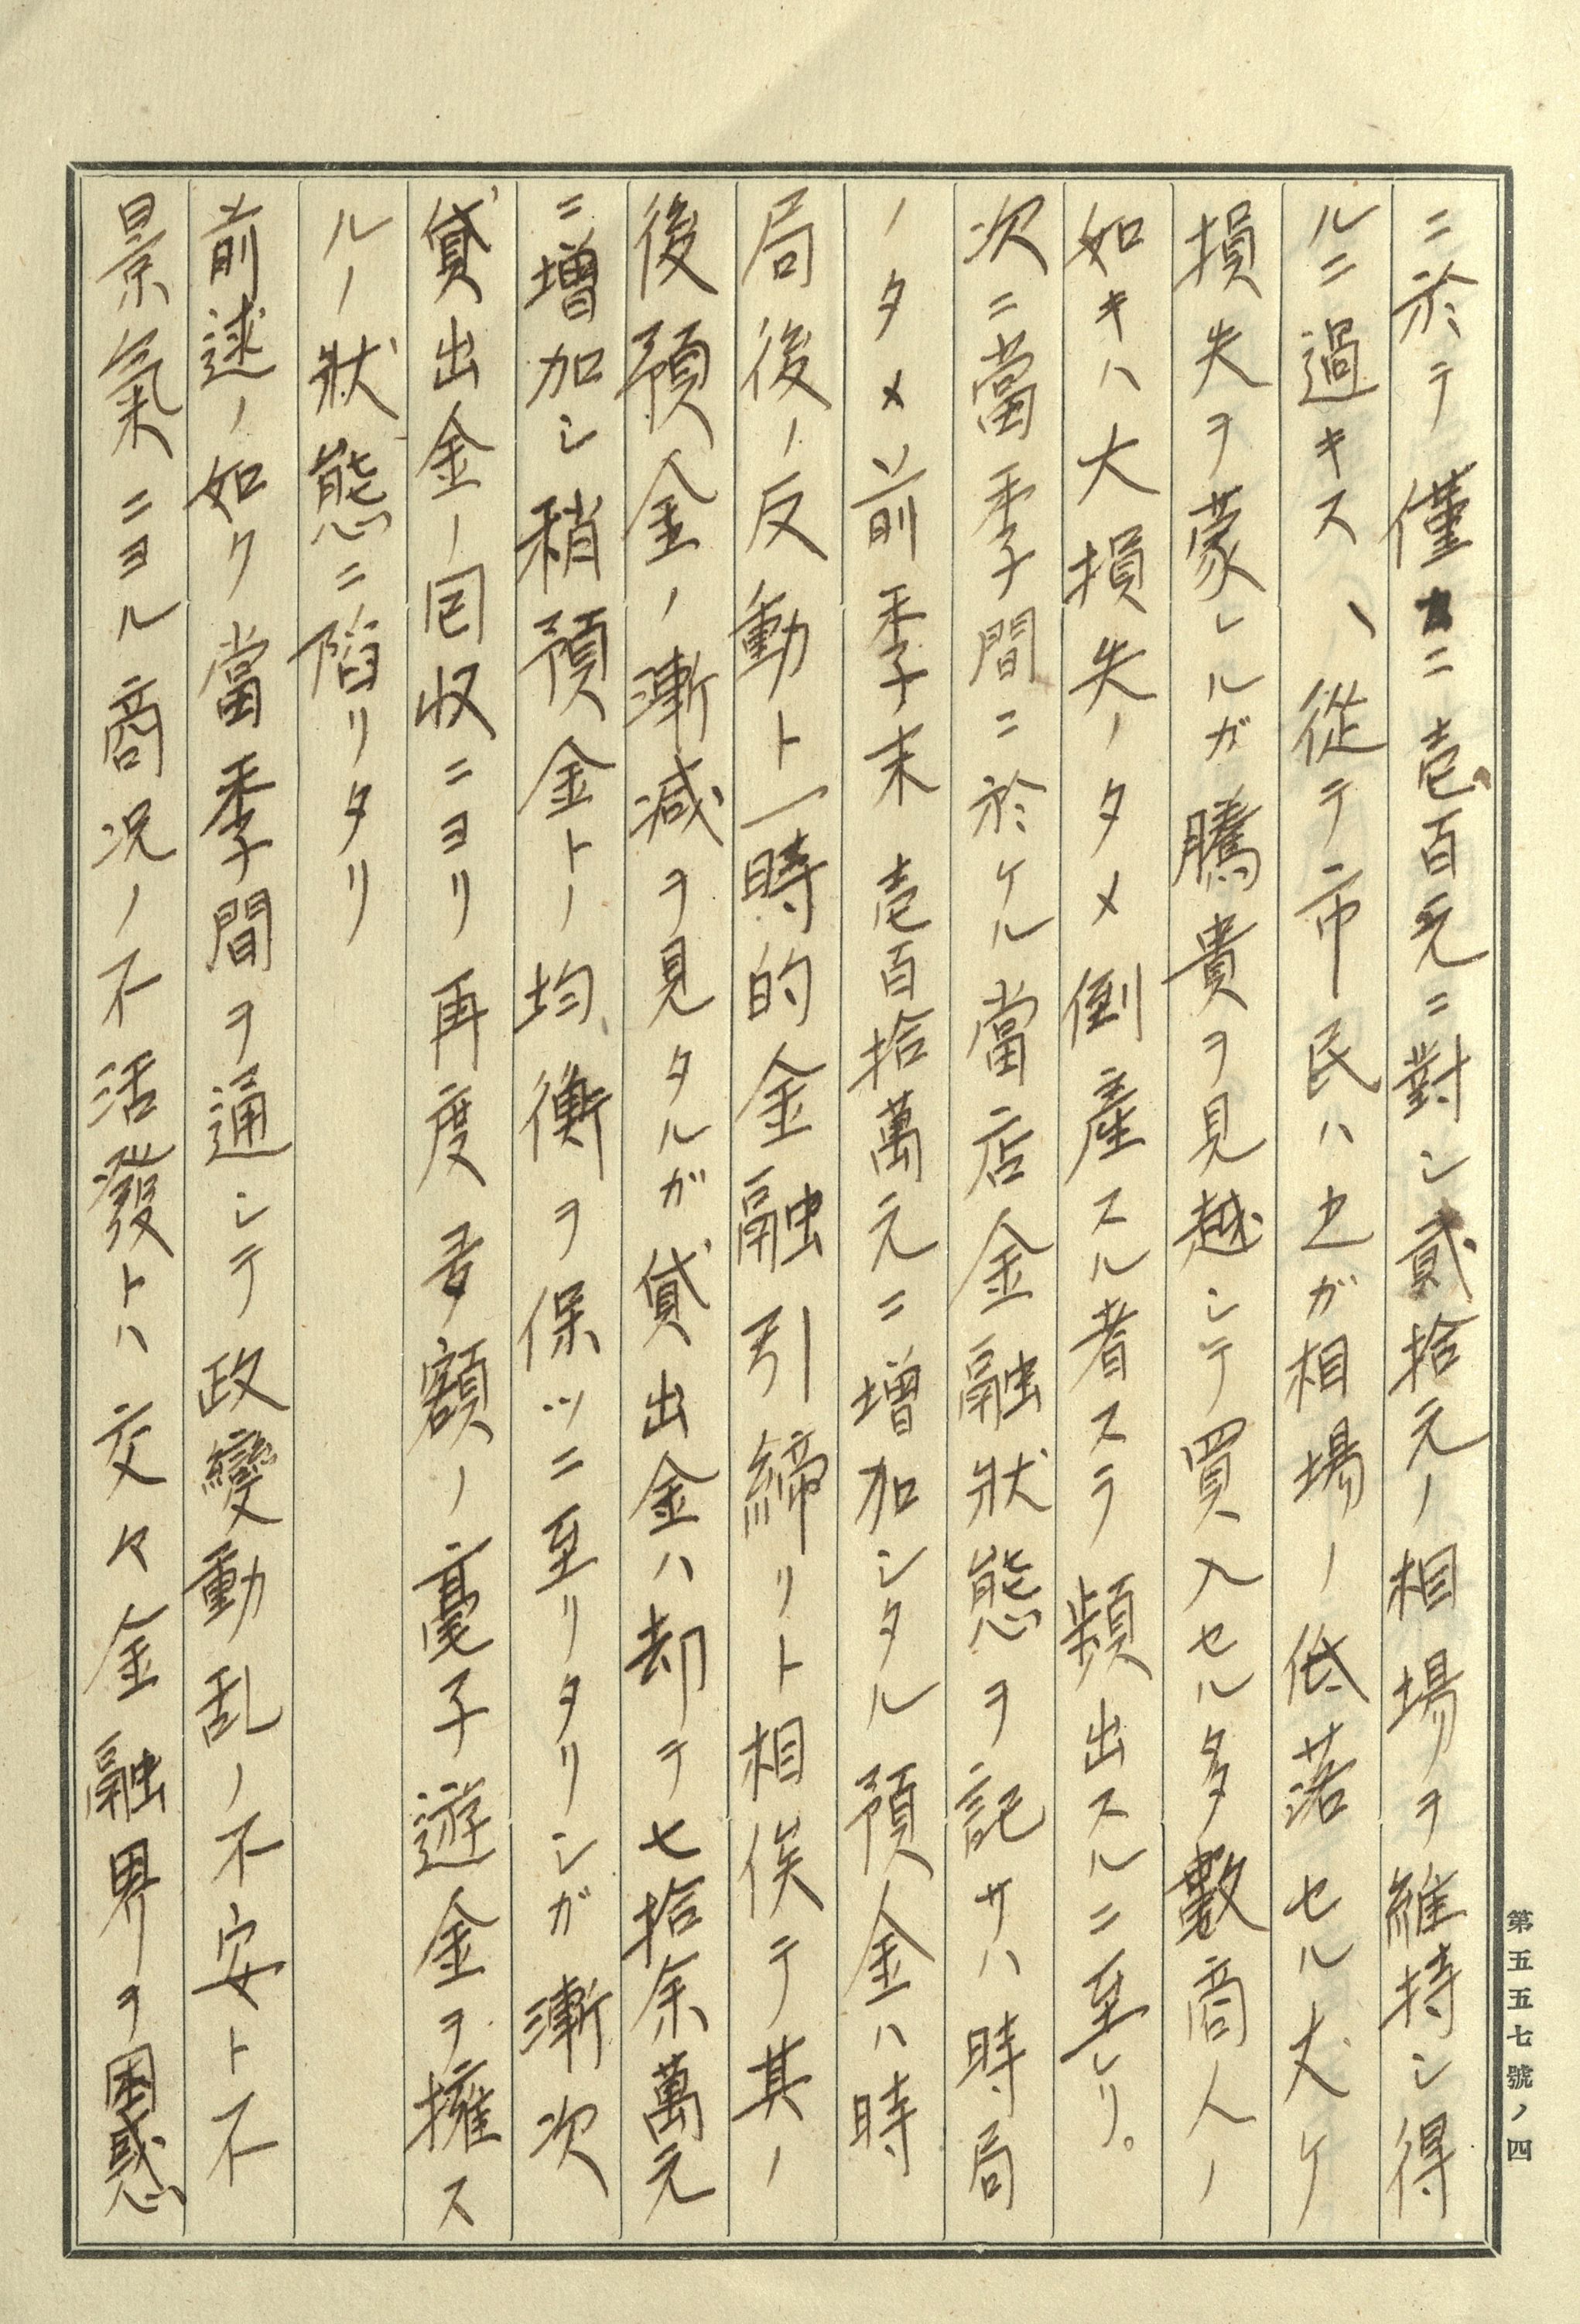 ニ於テ僅カニ壱百元ニ對シ貳拾元ノ相場ヲ維持シ得
ルニ過キス、從テ市民ハ之ガ相場ノ低落セル丈ケ
損失ヲ蒙レルガ騰貴ヲ見越シテ買入セル多數商人ノ
如キハ大損失ノタメ倒産スル者スラ頻出スルニ至レリ。
次ニ當季間ニ於ケル當店金融狀態ヲ記サハ時局
ノタメ前季末壱百拾萬元ニ增加シタル預金ハ時
局後ノ反動ト一時的金融引締リト相俟テ其ノ
後預金ノ漸減ヲ見タルガ貸出金ハ却テ七拾余萬元
ニ增加シ稍預金トノ均衡ヲ保ツニ至リタリシガ漸次
貸出金ノ回収ニヨリ再度多額ノ毫子遊金ヲ擁ス
ルノ狀態ニ陷リタリ
前述ノ如ク當季間ヲ通シテ政變動乱ノ不安ト不
景氣ニヨル商況ノ不活發トハ交々金融界ヲ困惑
第五五七號ノ四